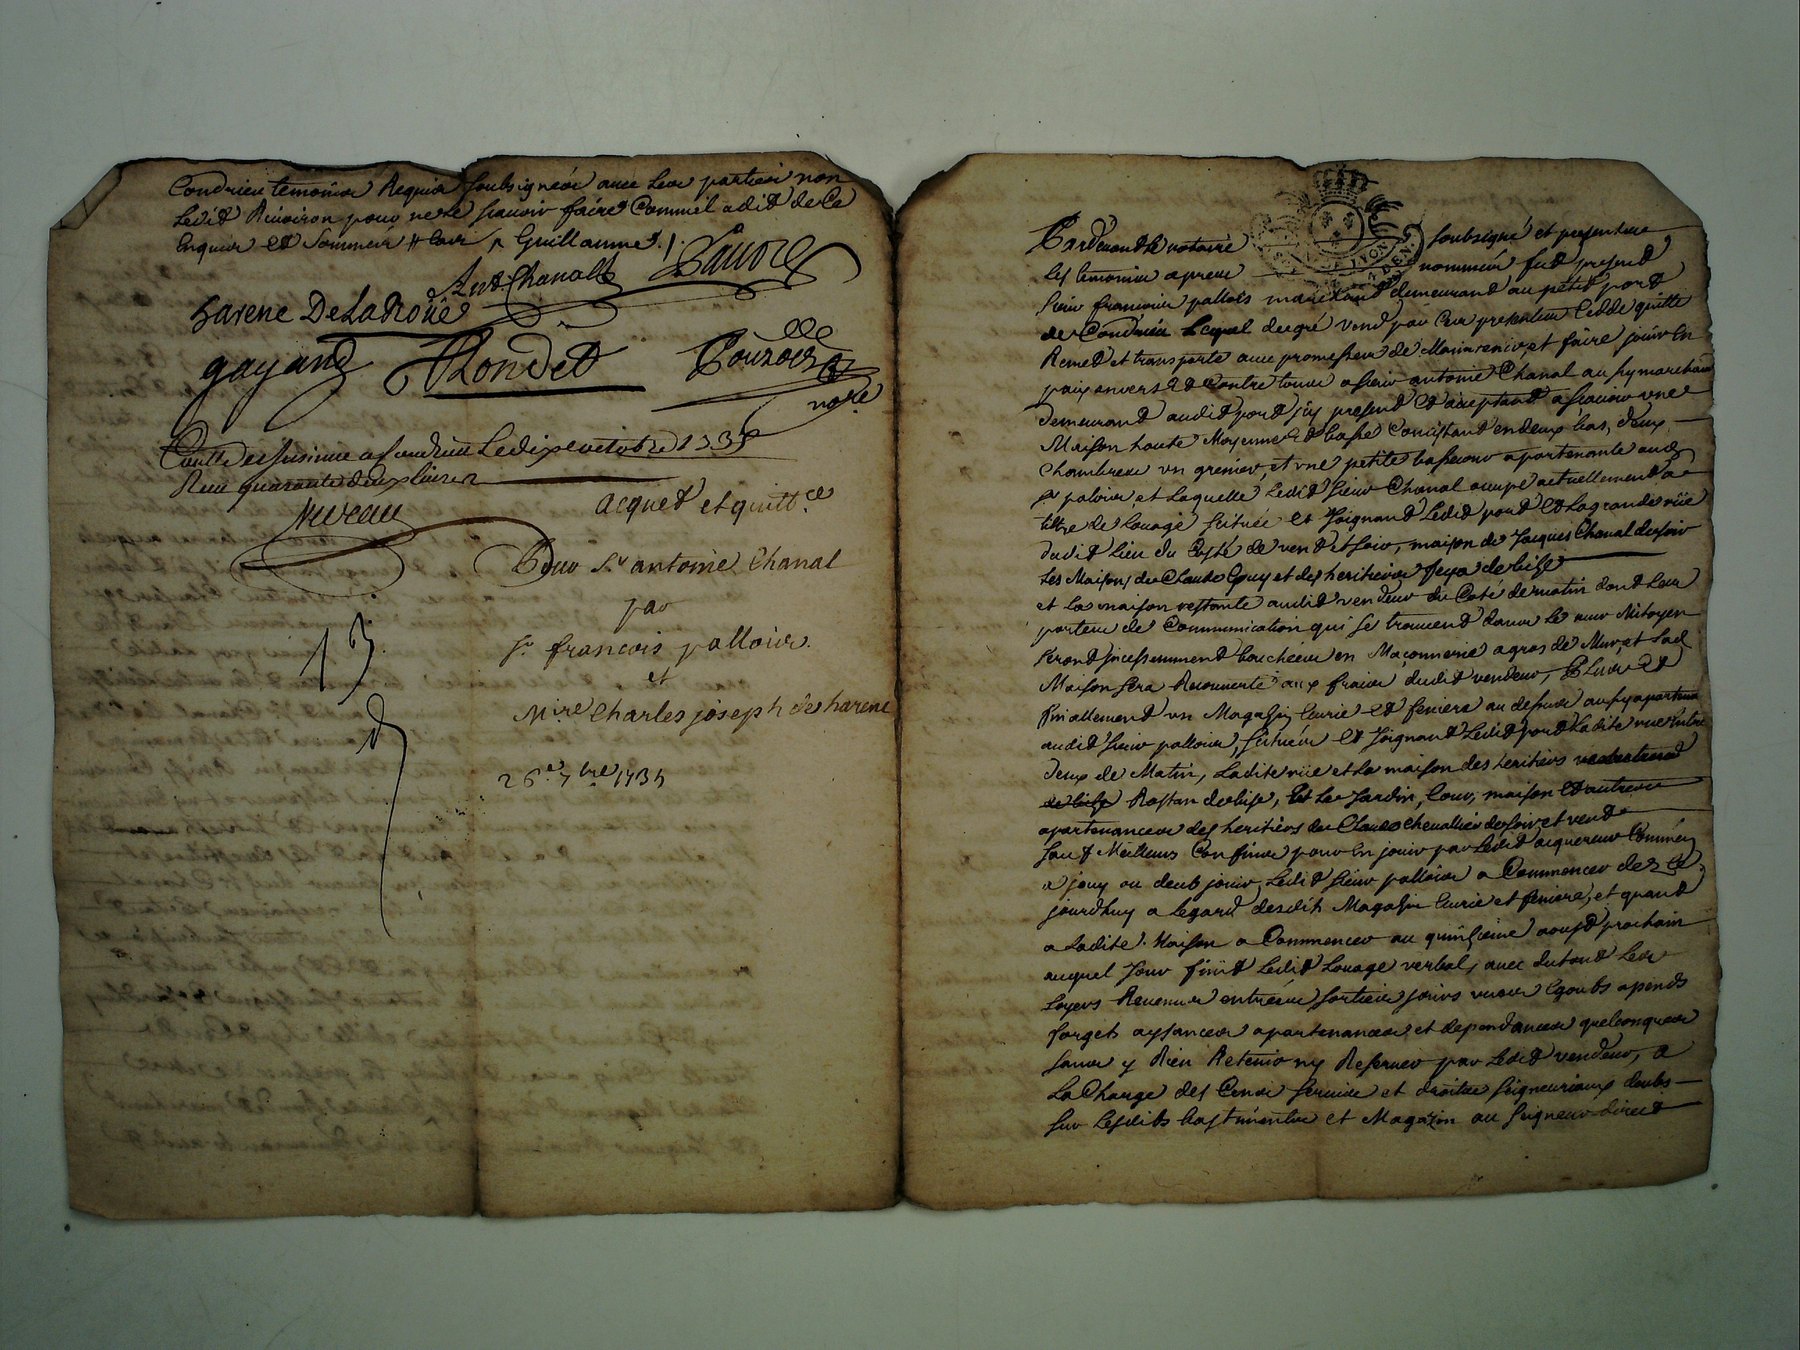 Condrieu temoins Requis soubsignés avec les parties non
ledit Rivoiron pour ne le scavoir faire Comme il a dit de ce
Enquis et Sommés # Clair p Guillaume ./.
Ant. Chanal
harene DeLaDroüe
gayand Rondet Pouzols
no.re
Contlé et insinué a Condrieu Le dixe octobre 1735
Receu quarante deux livres
acquet et quitt.ce
Pour Sr antoine Chanal
par
Sr francois pallois.
et
M.re Charles joseph de harene
26.e 7bre 1735
13
Pardevant le notaire soubsigné et presentz
les temoins apres nommés fut present
sieur francois pallois marchand demeurant au petit port
de Condrieu Lequel de gré vend par ces presentes Cedde quitte
Remet et transporte avec promesses de Maintenir, et faire jouir En
paix envers et Contre tous a sieur antoine Chanal aussy marchand
demeurant audit port jcy present et acceptant a scavoir une
Maison haute Moyenne et basse Concistant en deux bas, deux
Chambres un grenier, et une petite bassecour apartenante aud
sr pallois et laquelle ledit sieur Chanal occupe actuellement a
titre de Louage scituée et Joignant Ledit port et la grande rüe
dudit lieu du Costé de vent et soir, maison de Jacques Chanal de soir
Les Maisons de Claude Gouy et des heritiers Jeya de bise
et la maison restante audit vendeur du Coté de matin dont les
portes de Communication qui se trouvent dans le mur Mitoyen
seront jncessemment bouchées en Maçonnerie a gros de Mur, et lad
Maison sera Recouverte aux fraix dudit vendeur, Plus et
finallement un Magasin Ecurie et feniere au dessus aussy apartenant
audit sieur pallois, scitués et Joignant Ledit port Ladite rue Entre
deux de Matin, Ladite rüe et la maison des heritiers
de bise Rostan de bise, Et Les Jardin, Cour, maison et autres
apartenances des heritiers de Claude Chevallier de soir et vent
sauf Meilleurs Confins pour En jouir par Ledit acquereur Comme En
a jouy ou deub jouir Ledit sieur pallois a Commencer dez Ce
jourdhuy a legard desdits Magasin Ecurie et feniere, et quant
a Ladite Maison a Commencer au quinzieme aoust prochain
auquel Jour finit Ledit Louage verbal, avec du tout Les
Loyers Revenus entrées sorties jours vues Egouts apends
forgets aysances apartenances et dependances quelconques
sans y Rien Retenir ny Reserver par Ledit vendeur, a
La Charge des Cens servis et droits seigneuriaux deubs
sur Lesdits bastiments et Magazin au Seigneur direct